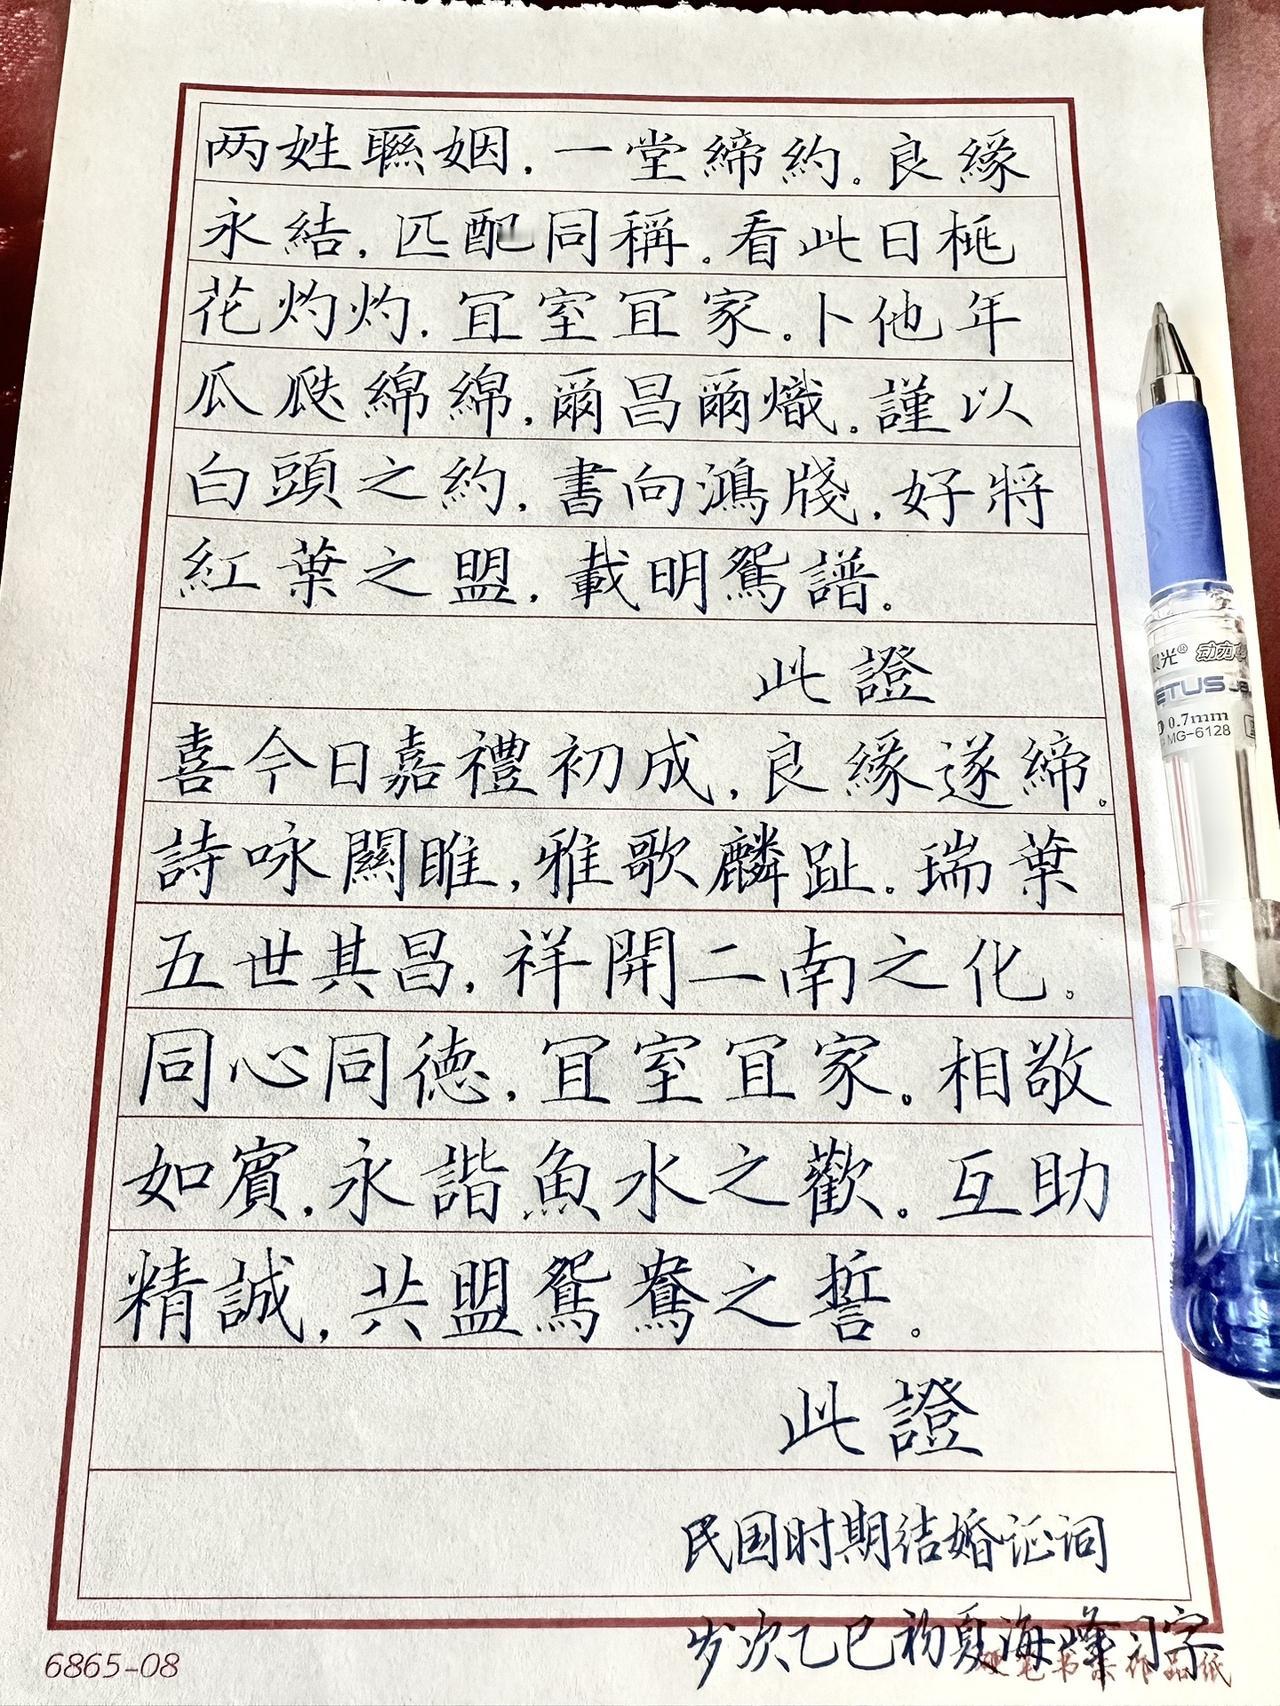 两姓聯姻，一堂締約。良緣
永結，匹配同稱。看此日桃
花灼灼，宜室宜家。卜他年
瓜瓞綿綿，爾昌爾熾。謹以
白頭之約，書向鴻牋，好將
紅葉之盟，載明鴛譜。
此證
喜今日嘉禮初成，良緣遂締。
詩咏關雎，雅歌麟趾。瑞葉
五世其昌，祥開二南之化。
同心同德，宜室宜家。相敬
如賓，永諧魚水之歡。互助
精誠，共盟鴛鴦之誓。
此證
民国时期结婚证词
岁次乙巳初夏海峰习字
硬笔书法作品纸
6865-08
光® 动力
ETUS
0.7mm
MG-6128